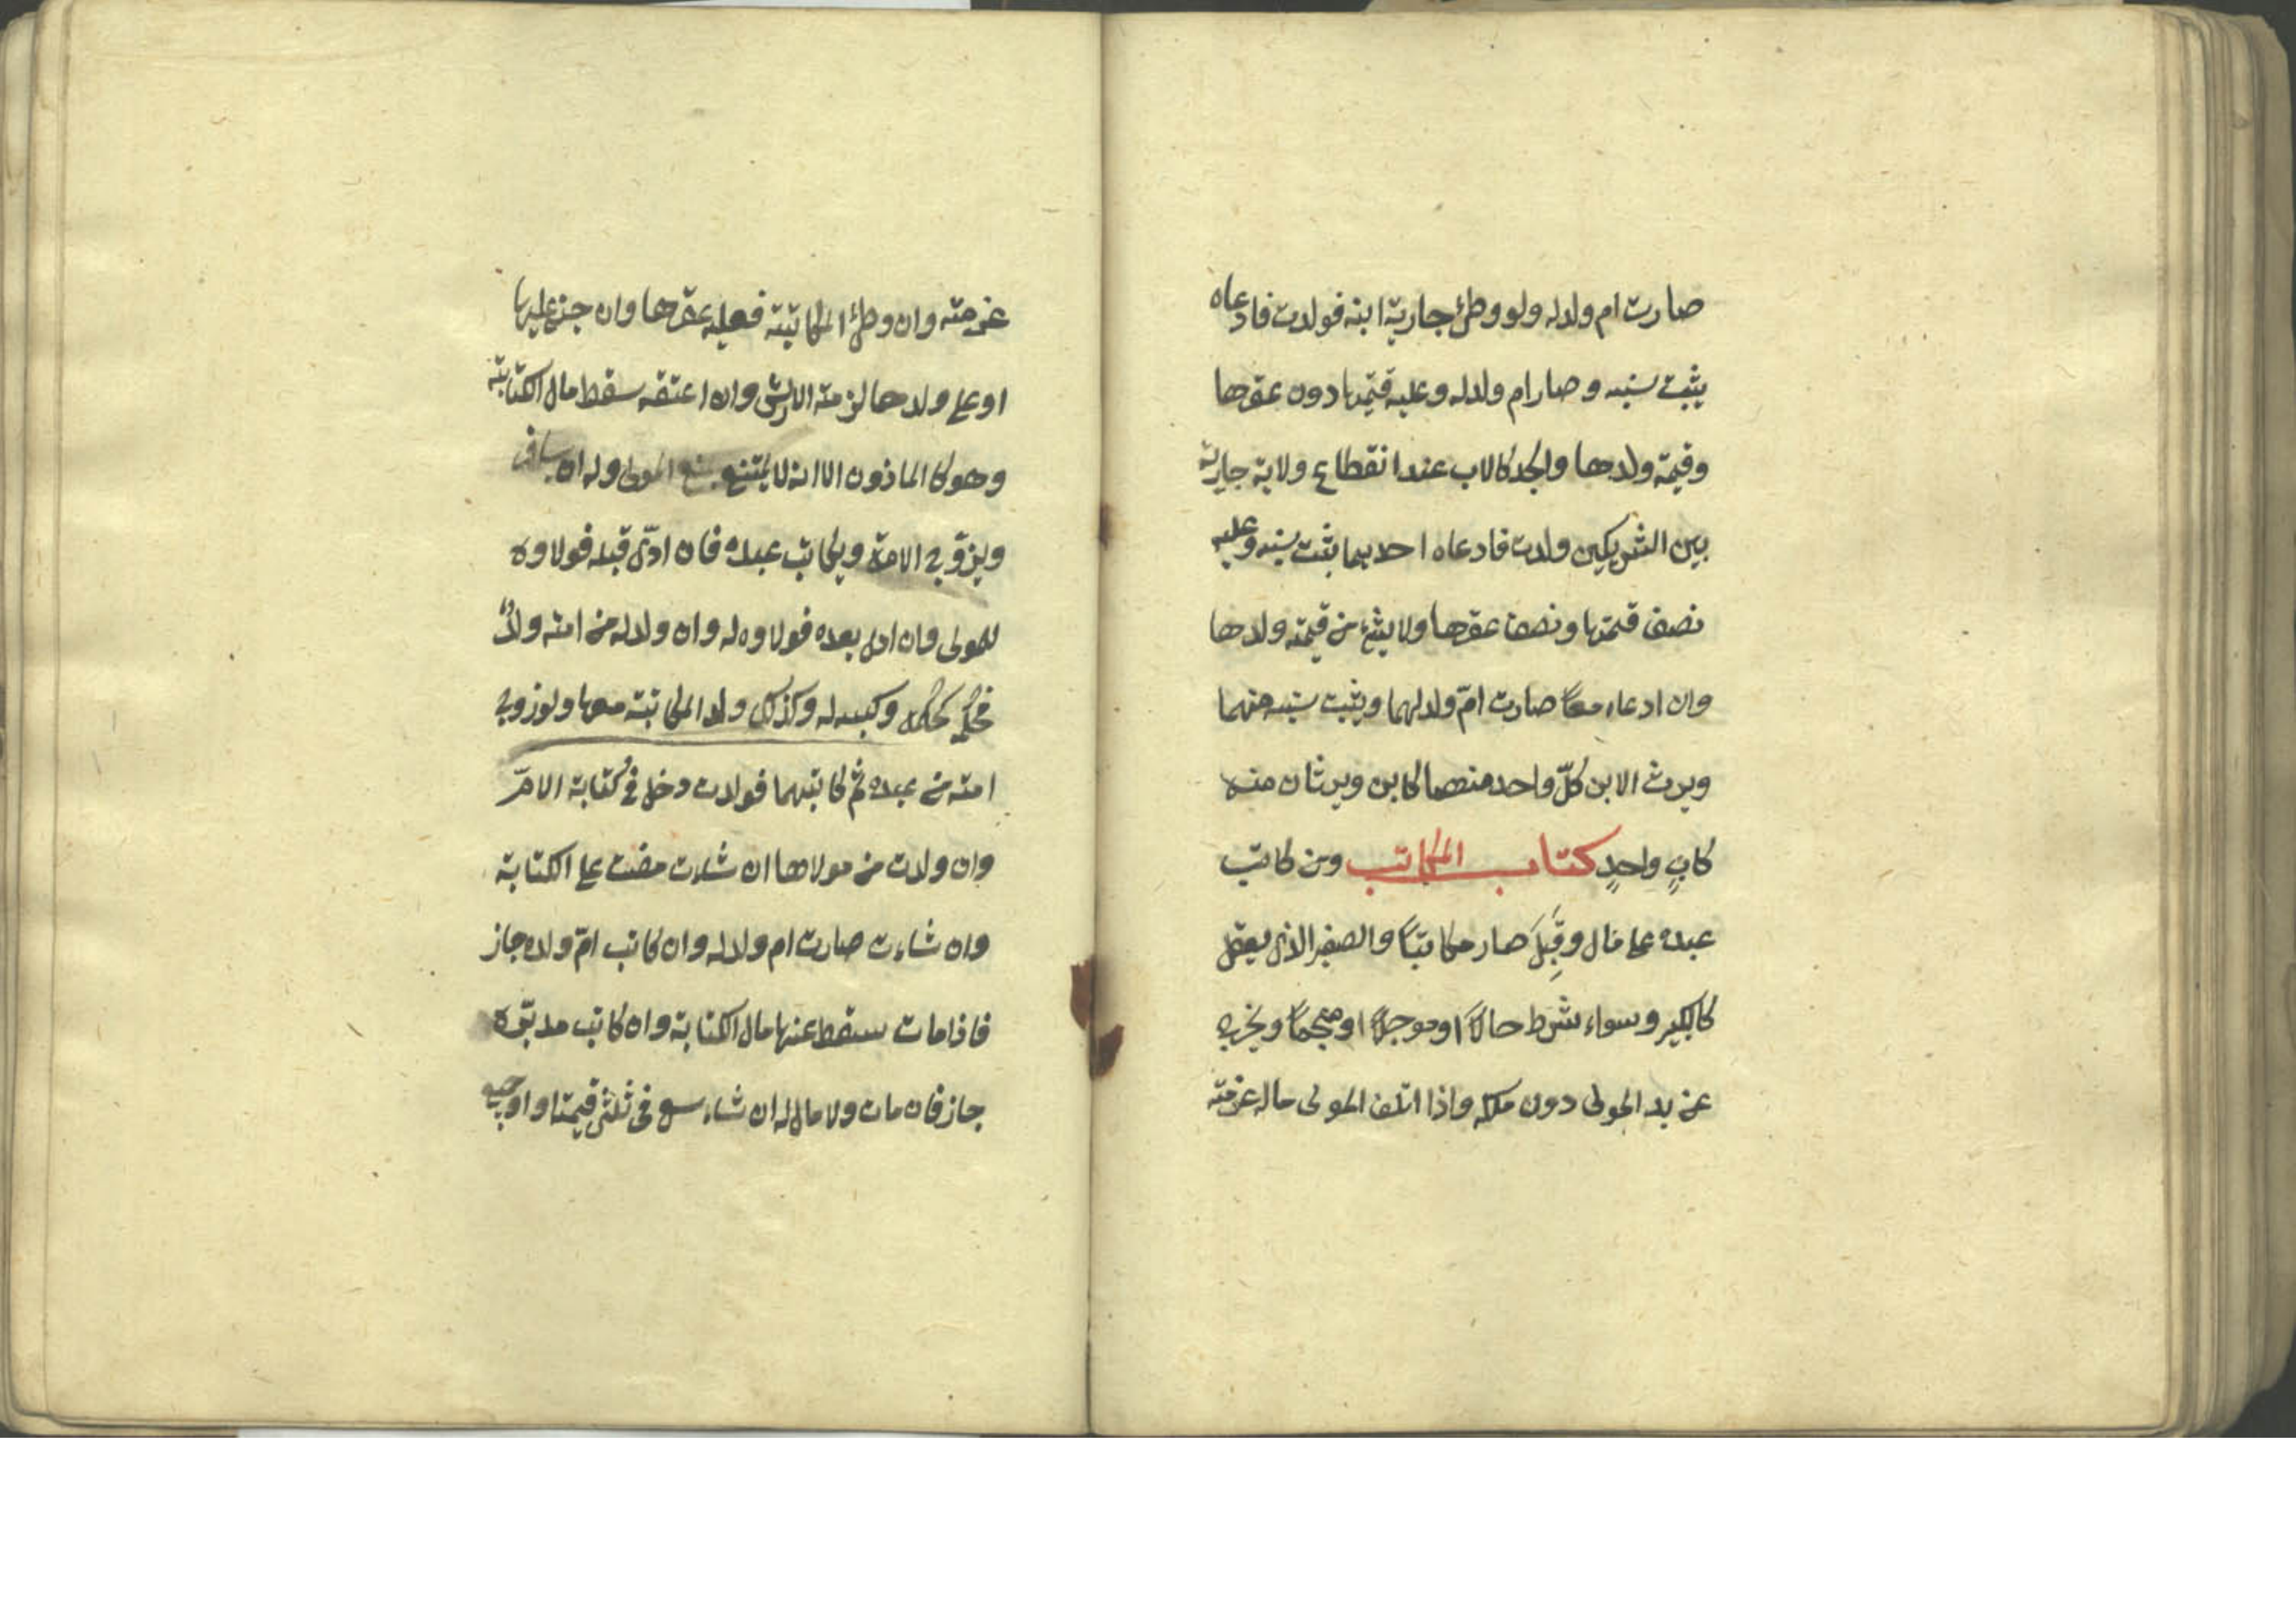 صارت ام ولد له ولو وطئ جارية ابنه فولدت فادعاه
يثبت نسبه وصار ام ولد له وعليه قيمتها دون عقرها
وقيمة ولدها والجد كالاب عند انقطاع ولاية جارية
بين الشريكين ولدت فادعاه احدهما يثبت نسبه وعليه
نصف قيمتها ونصف عقرها ولا يشئ من قيمة ولدها
وان ادعاه معاً صارت امّ ولد لهما ويثبت نسبه منهما
ويرث الابن كلّ واحد منهما كابن ويرثان منه
كابٍ واحدٍ كتاب المكاتب ومن كاتب
عبده على مال وقَبِلَ صار مكاتبًا والصغير الذى يعقل
كالكبير وسواء شرط حالاً او موجلاً او منجماً ويخرج
عن يد المولى دون ملكه واذا اتلف المولى ماله غرمته
غرمته وان وطئ المكاتبة فعليه عقرها وان جنى عليها
او على ولدها لزمته الارش وان اعتقه سقط مال الكتابة
وهو كالماذون الا انه لا يمتنع بمنع المولى وله ان يسافر
ويزوّج الامة ويكاتب عبده فان ادّى قبله فولاوه
للمولى وان ادى بعده فولاوه له وان ولد له من امته ولدٌ
فحكمه كحكمه وكسبه له وكذلك ولد المكاتبة معها ولو زوج
امته من عبده ثم كاتبهما فولدت دخل فى كتابة الامّ
وان ولدت من مولاها ان شاءت مضت على الكتابة
وان شاءت صارت ام ولد له وان كاتب امّ ولده جاز
فاذا مات سقط عنها مال الكتابة وان كاتب مدبّره
جاز فان مات ولا مال له ان شاء سعى فى ثلثى قيمتا او